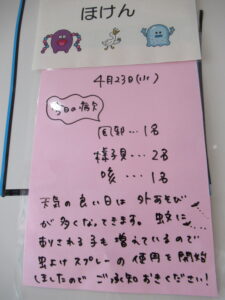 ほけん
4月23日(火)
今日の病欠
風邪…1名
様子見…2名
咳…1名
天気の良い日は 外あそび
が多くなってきます。蚊に
刺される子も増えているので
虫よけスプレーの使用を開始
しましたので ご承知おきください!